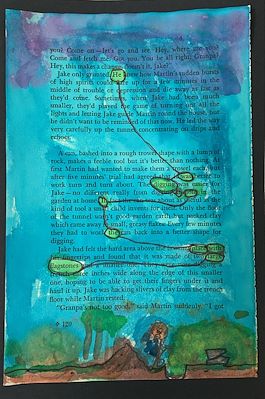 you? Come on—let's go and see. Hey, where are you?
Come and fetch me. Got you. You be all right, Granpa?
Hey, this makes a change, doesn't it, Jake?'
Jake only grunted. He knew how Martin's sudden bursts
of high spirits could flare up for a few minutes in the
middle of trouble or depression and die away as fast as
they'd come. Sometimes, when Jake had been much
smaller, they'd played the game of turning out all the
lights and letting Jake guide Martin round the house, but
he didn't want to be reminded of that now. He led the way
very carefully up the tunnel, concentrating on drips and
echoes.
A can, bashed into a rough trowel shape with a lump of
rock, makes a feeble tool but it's better than nothing. At
first Martin had wanted to make them a trowel each, but
after five minutes' trial had agreed that it was easier to
work turn and turn about. The digging was easier for
Jake—no different, really, from
garden at home
kind of tool a
the tunnel was good garden earth, but
which came away in small, greasy flakes. Every few minutes
they had to work the can back into a better shape for
digging.
Jake had felt the hard area above the
his fingertips and found that it was made of two large
flagstones
trench three inches wide along the edge of this smaller
one, hoping to be able to get their fingers under it and
haul it up. Jake was hacking slivers of clay from the trench
floor while Martin rested.
'Granpa's not too good,' said Martin suddenly. 'I got
120